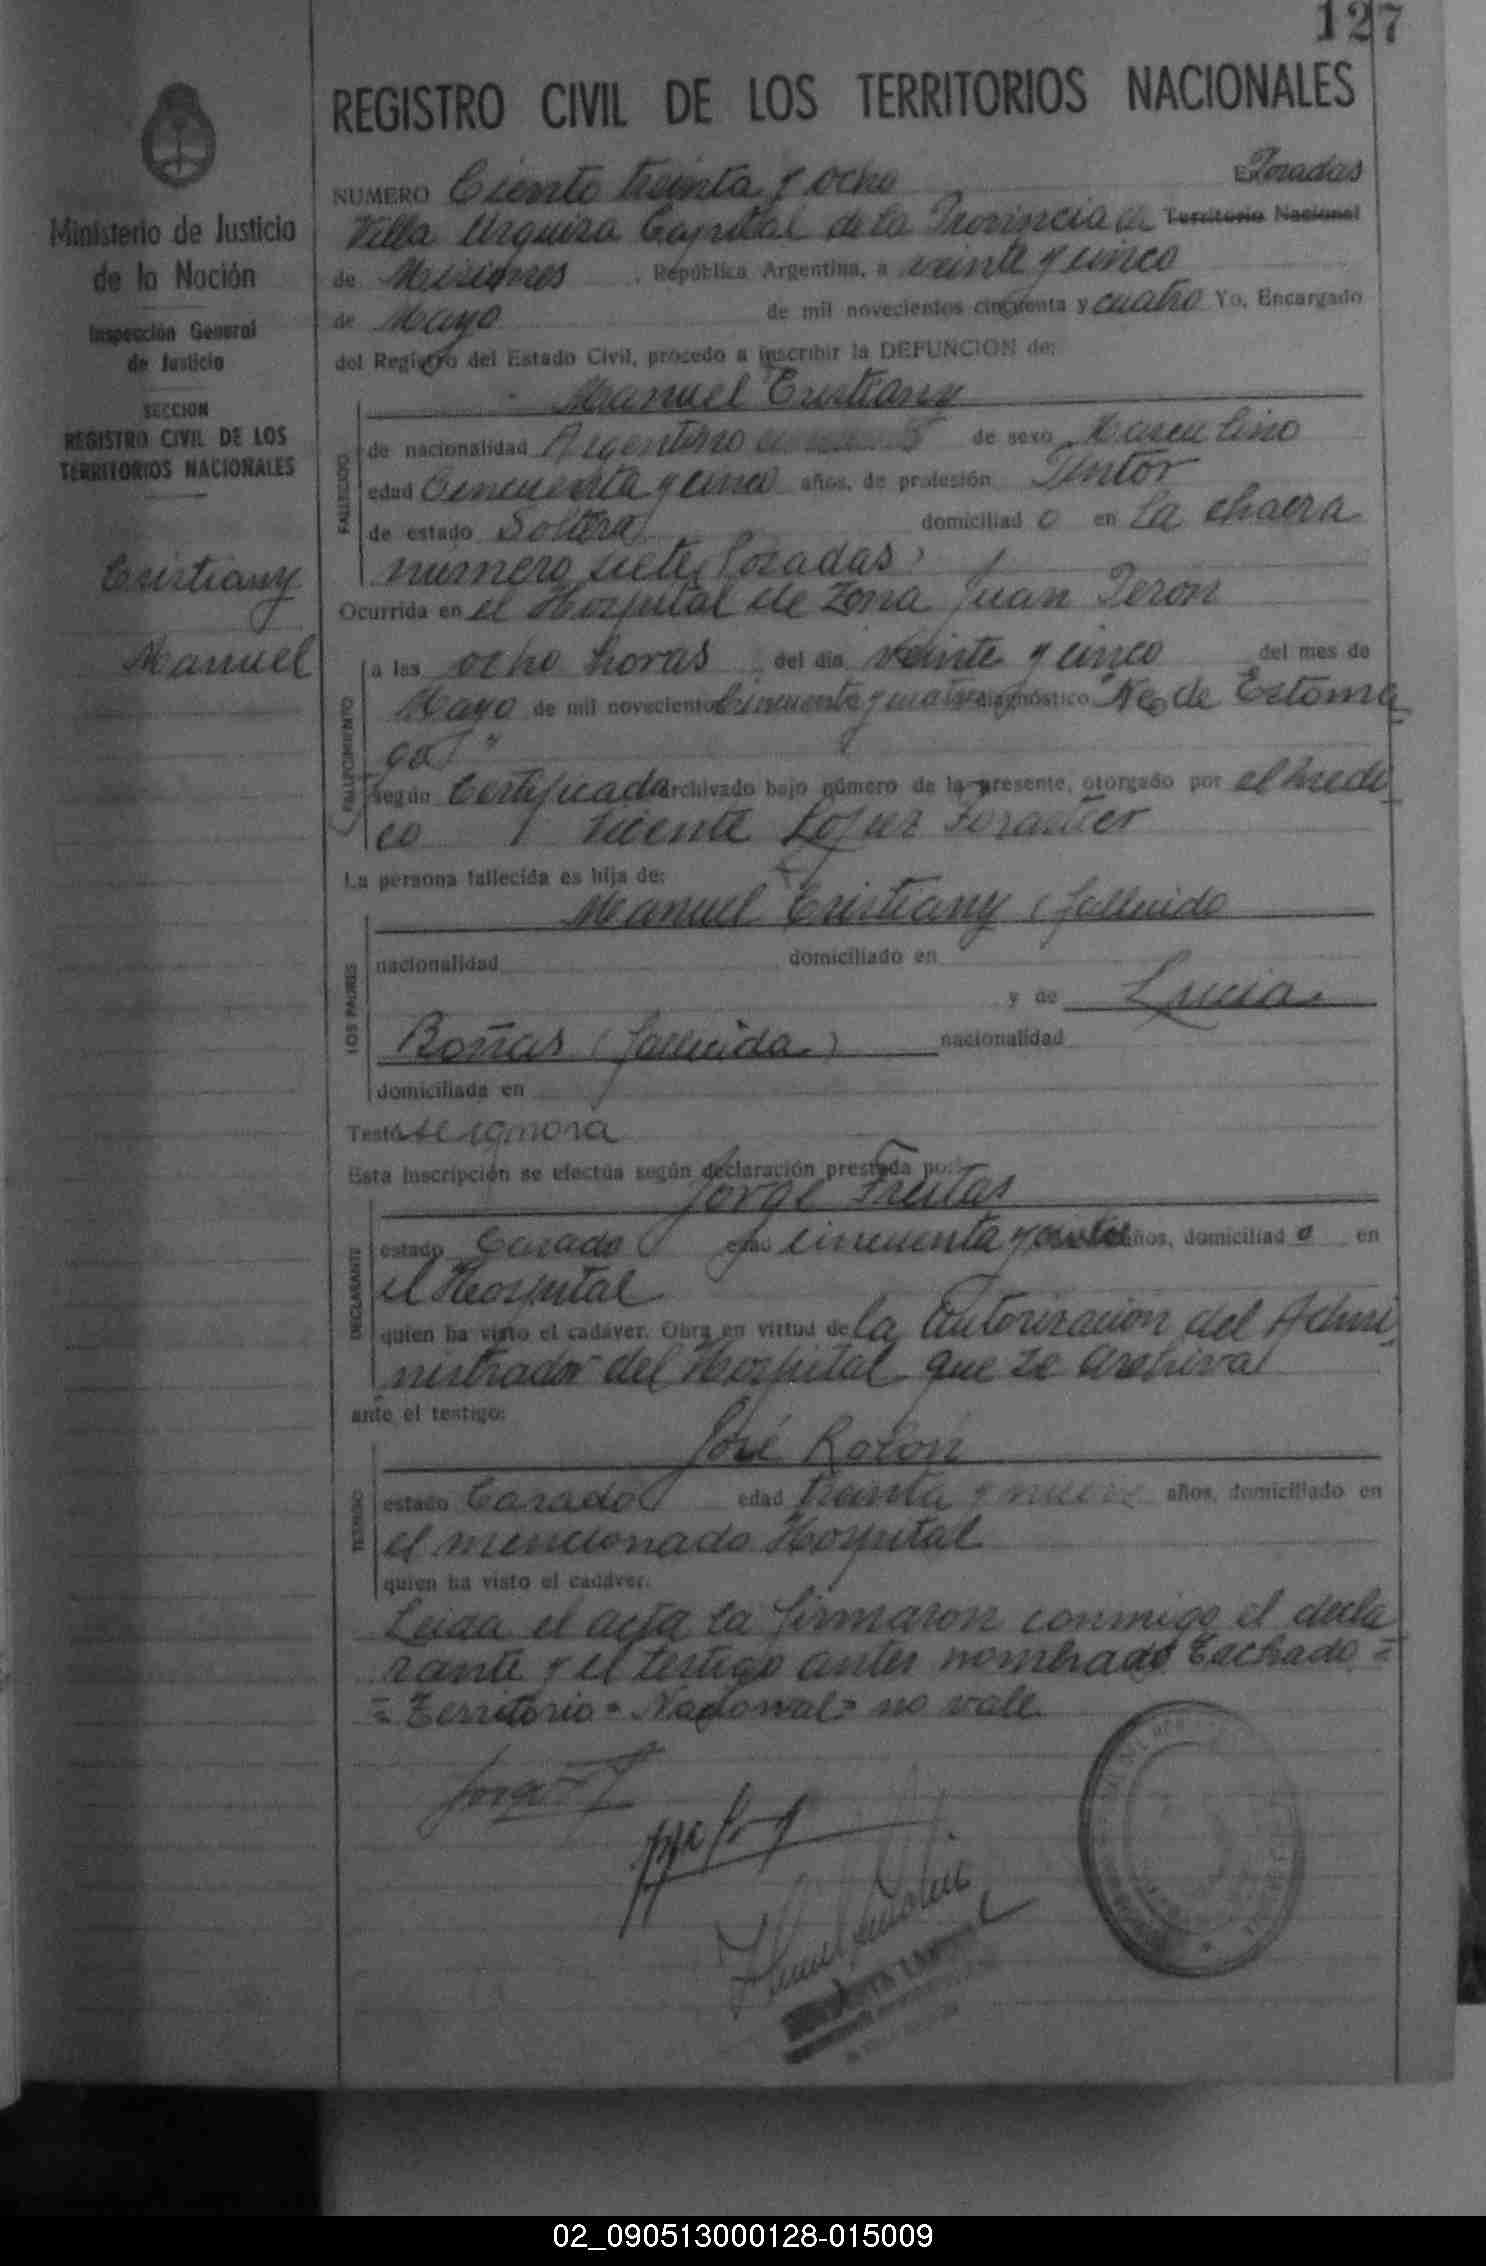 127
REGISTRO CIVIL DE LOS TERRITORIOS NACIONALES
Ministerio de Justicia
de la Nación
Inspección General
de Justicia
SECCION
REGISTRO CIVIL DE LOS
TERRITORIOS NACIONALES
Cristiany
Manuel
NUMERO Ciento treinta y ocho Posadas
Villa Urquiza Capital de la Provincia de Territorio Nacional
de Misiones, República Argentina, a veinte y cinco
de Mayo de mil novecientos cincuenta y cuatro Yo, Encargado
del Registro del Estado Civil, procedo a inscribir la DEFUNCION de:
Manuel Cristiany
FALLECIDO
de nacionalidad Argentino de sexo Masculino
edad Cincuenta y cinco años, de profesión Pintor
de estado Soltero domiciliad o en La chacra
numero siete Posadas
Ocurrida en el Hospital de Zona Juan Peron
FALLECIMIENTO
a las ocho horas del día veinte y cinco del mes de
Mayo de mil novecientos cincuenta y cuatro diagnóstico "Neo de Estoma
go"
según Certificado archivado bajo número de la presente, otorgado por el medi
co Vicente Lopez
La persona fallecida es hija de:
LOS PADRES
Manuel Cristiany (fallecido
nacionalidad domiciliado en
y de Lucia
(fallecida) nacionalidad
domiciliada en
Testó se ignora
Esta inscripción se efectúa según declaración prestada por:
Jorge Freitas
DECLARANTE
estado Casado edad cincuenta y años, domiciliad o en
el Hospital
quien ha visto el cadáver. Obra en virtud de la autorizacion del Admi
nistrador del Hospital que se archiva
ante el testigo:
José Rolon
TESTIGO
estado Casado edad treinta y nueve años, domiciliado en
el mencionado Hospital
quien ha visto el cadáver.
Leida el acta la firmaron conmigo el decla
rante y el testigo antes nombrado Tachado =
= Territorio = Nacional = no vale
02_090513000128-015009